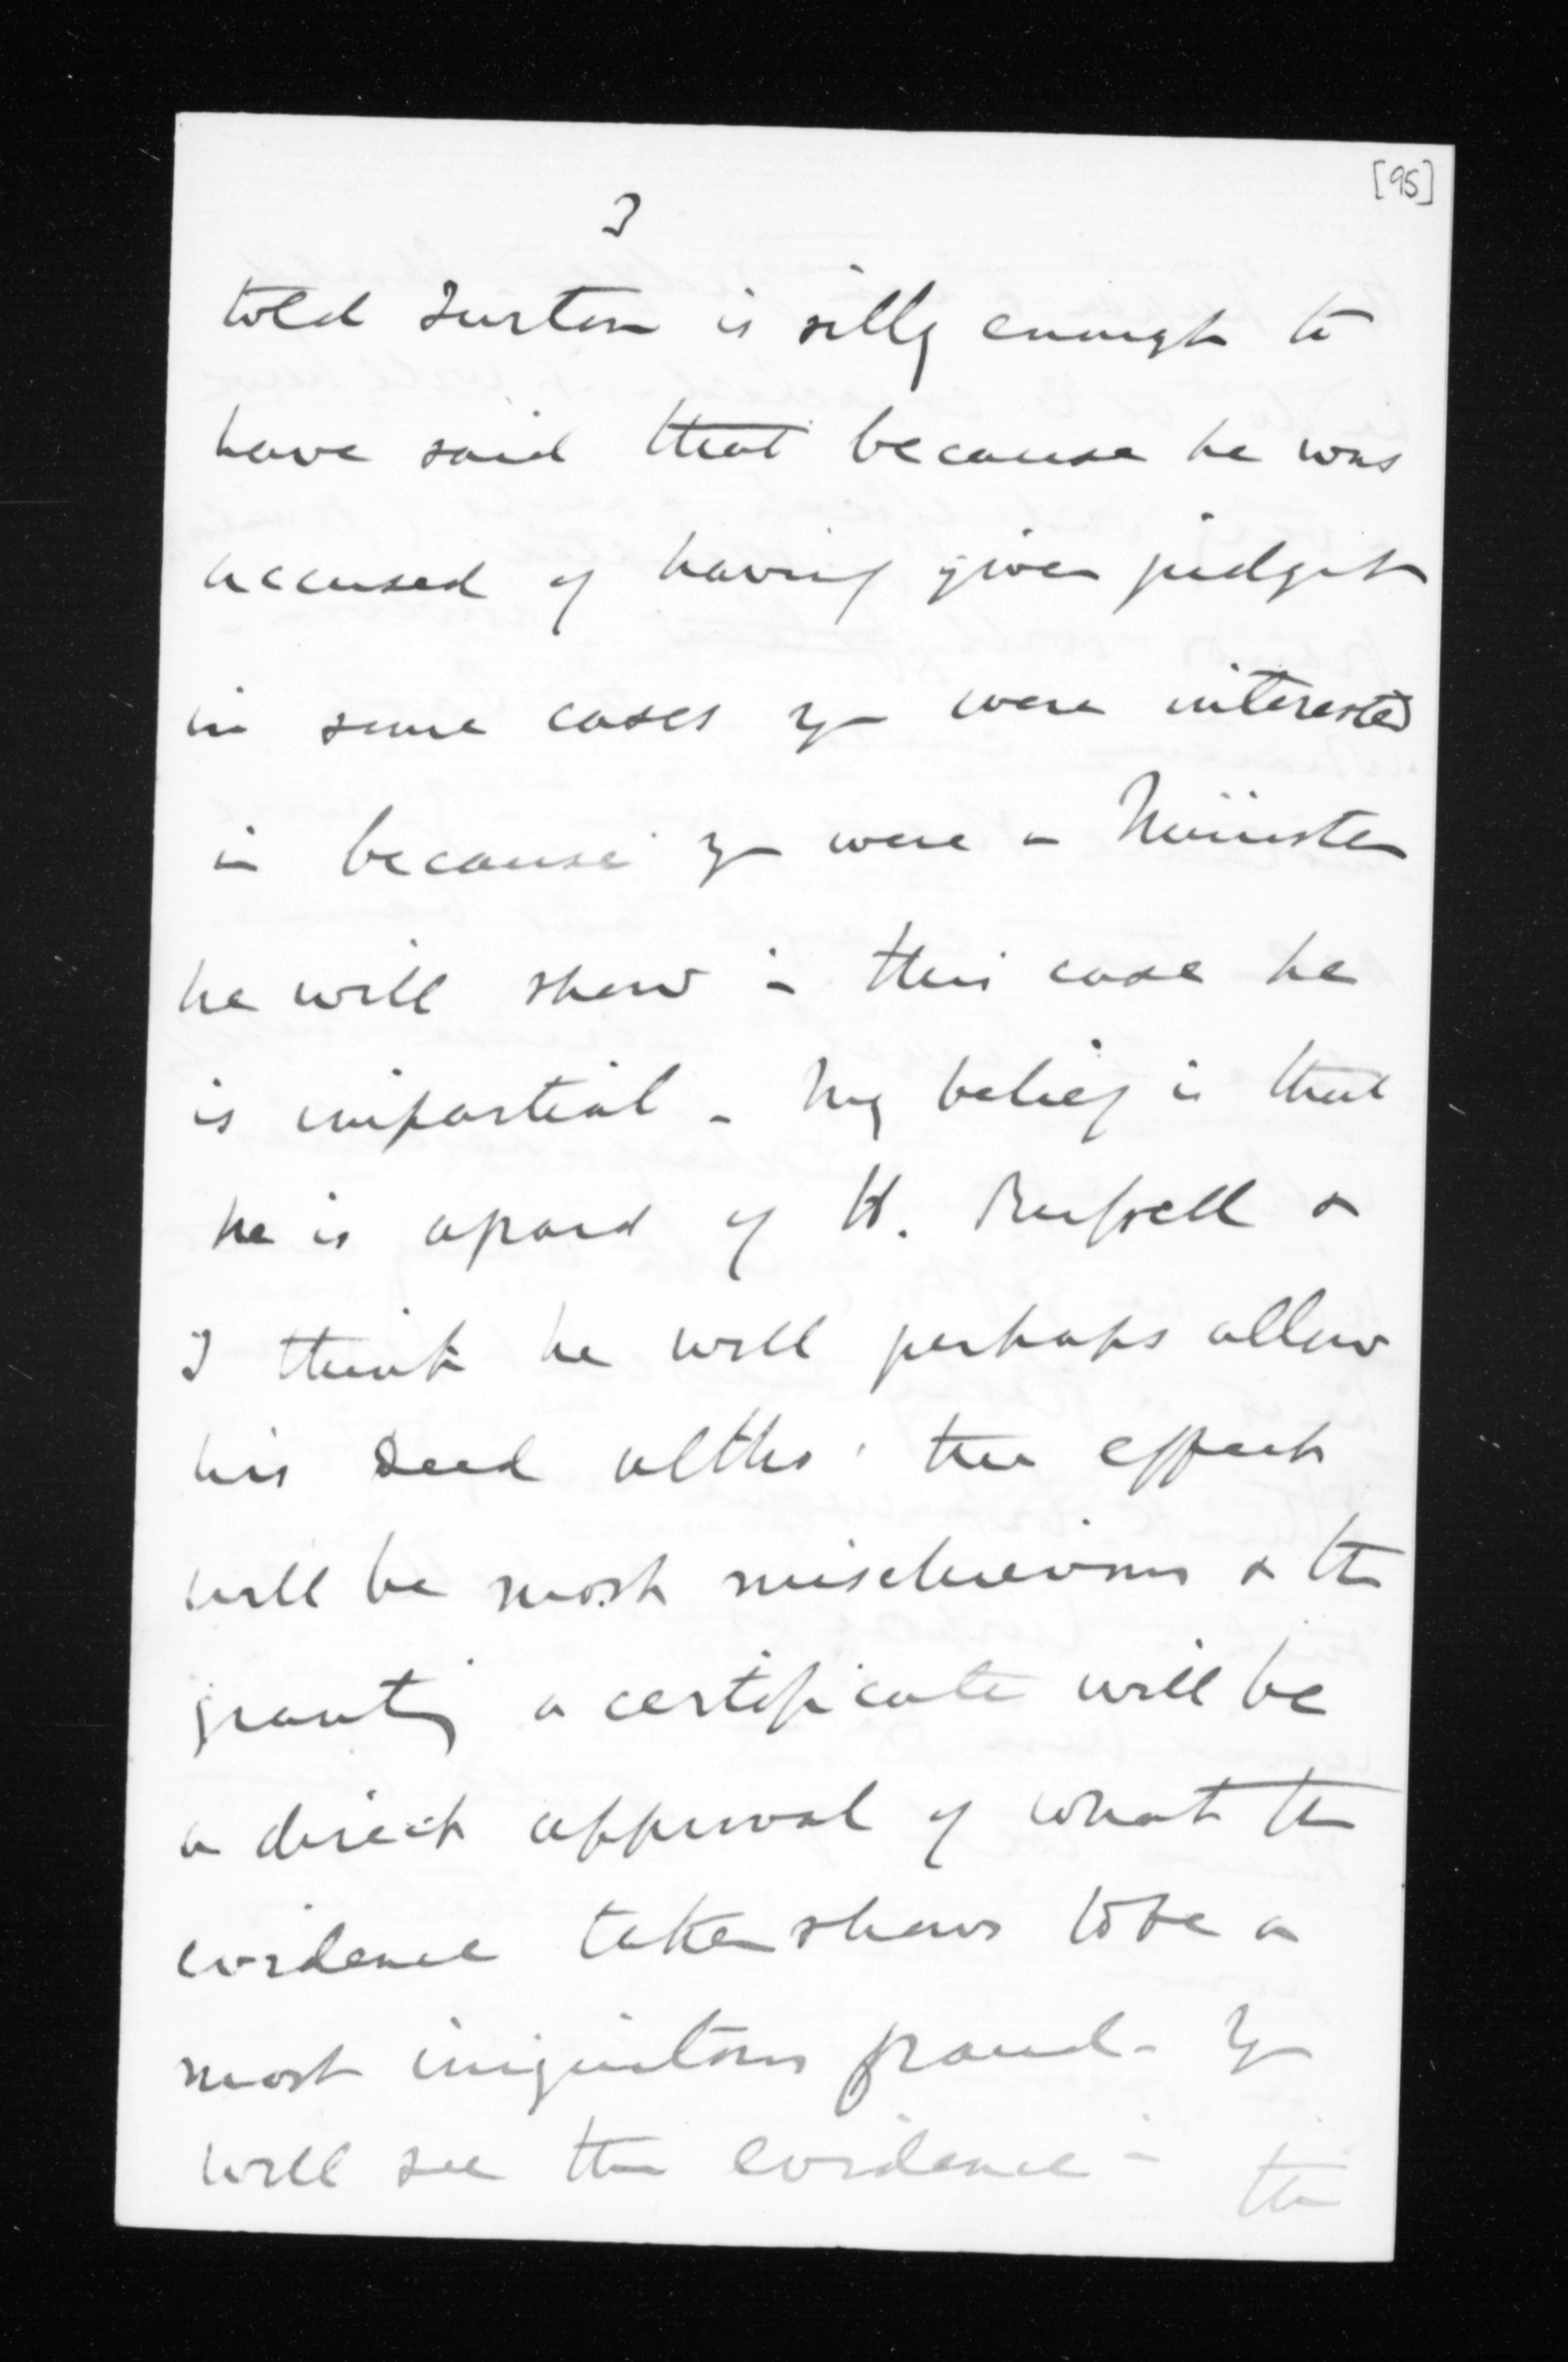 [95]
3
told Turton is silly enough to
have said that because he was
accused of having given judgt
in some cases yr were interested
in because yr were a Minister
he will show in this case he
is impartial - My belief is that
he is afraid of H. Russell &
I think he will perhaps allow
his deed altho' the effect
will be most mischievous & the
granting a certificate will be
a direct approval of what the
evidence taken shows to be a
most iniquitous fraud - Yr
will see the evidence in the